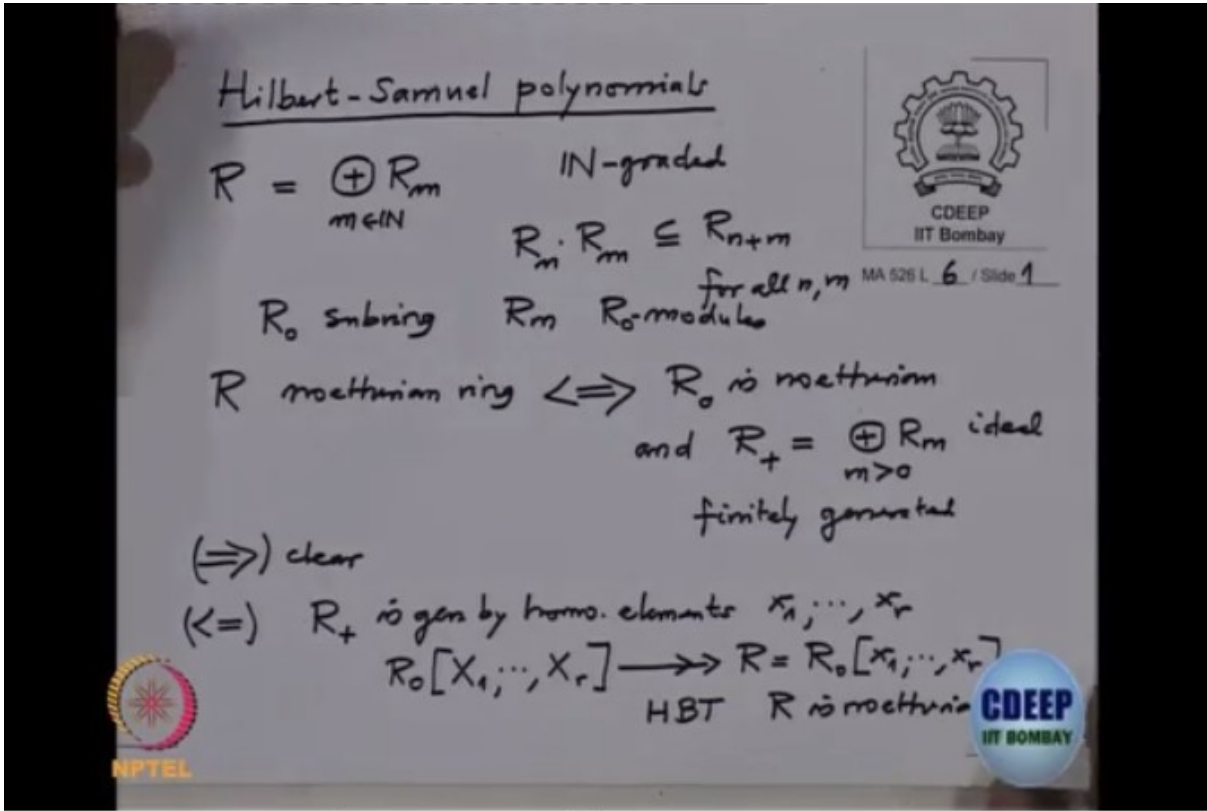 Hilbert-Samuel polynomials
R = ⊕ R_m   IN-graded
m∈IN
R_n · R_m ⊆ R_{n+m}
for all n, m
CDEEP
IIT Bombay
MA 526 L 6 / Slide 1
R_0 subring   R_m R_0-modules
R noetherian ring <=> R_0 is noetherian
and R_+ = ⊕ R_m ideal
m>0
finitely generated
(=>) clear
(<=) R_+ is gen by homo. elements x_1, ..., x_r
R_0[X_1, ..., X_r] ↠ R = R_0[x_1, ..., x_r]
HBT   R is noetheria
NPTEL
CDEEP
IIT BOMBAY